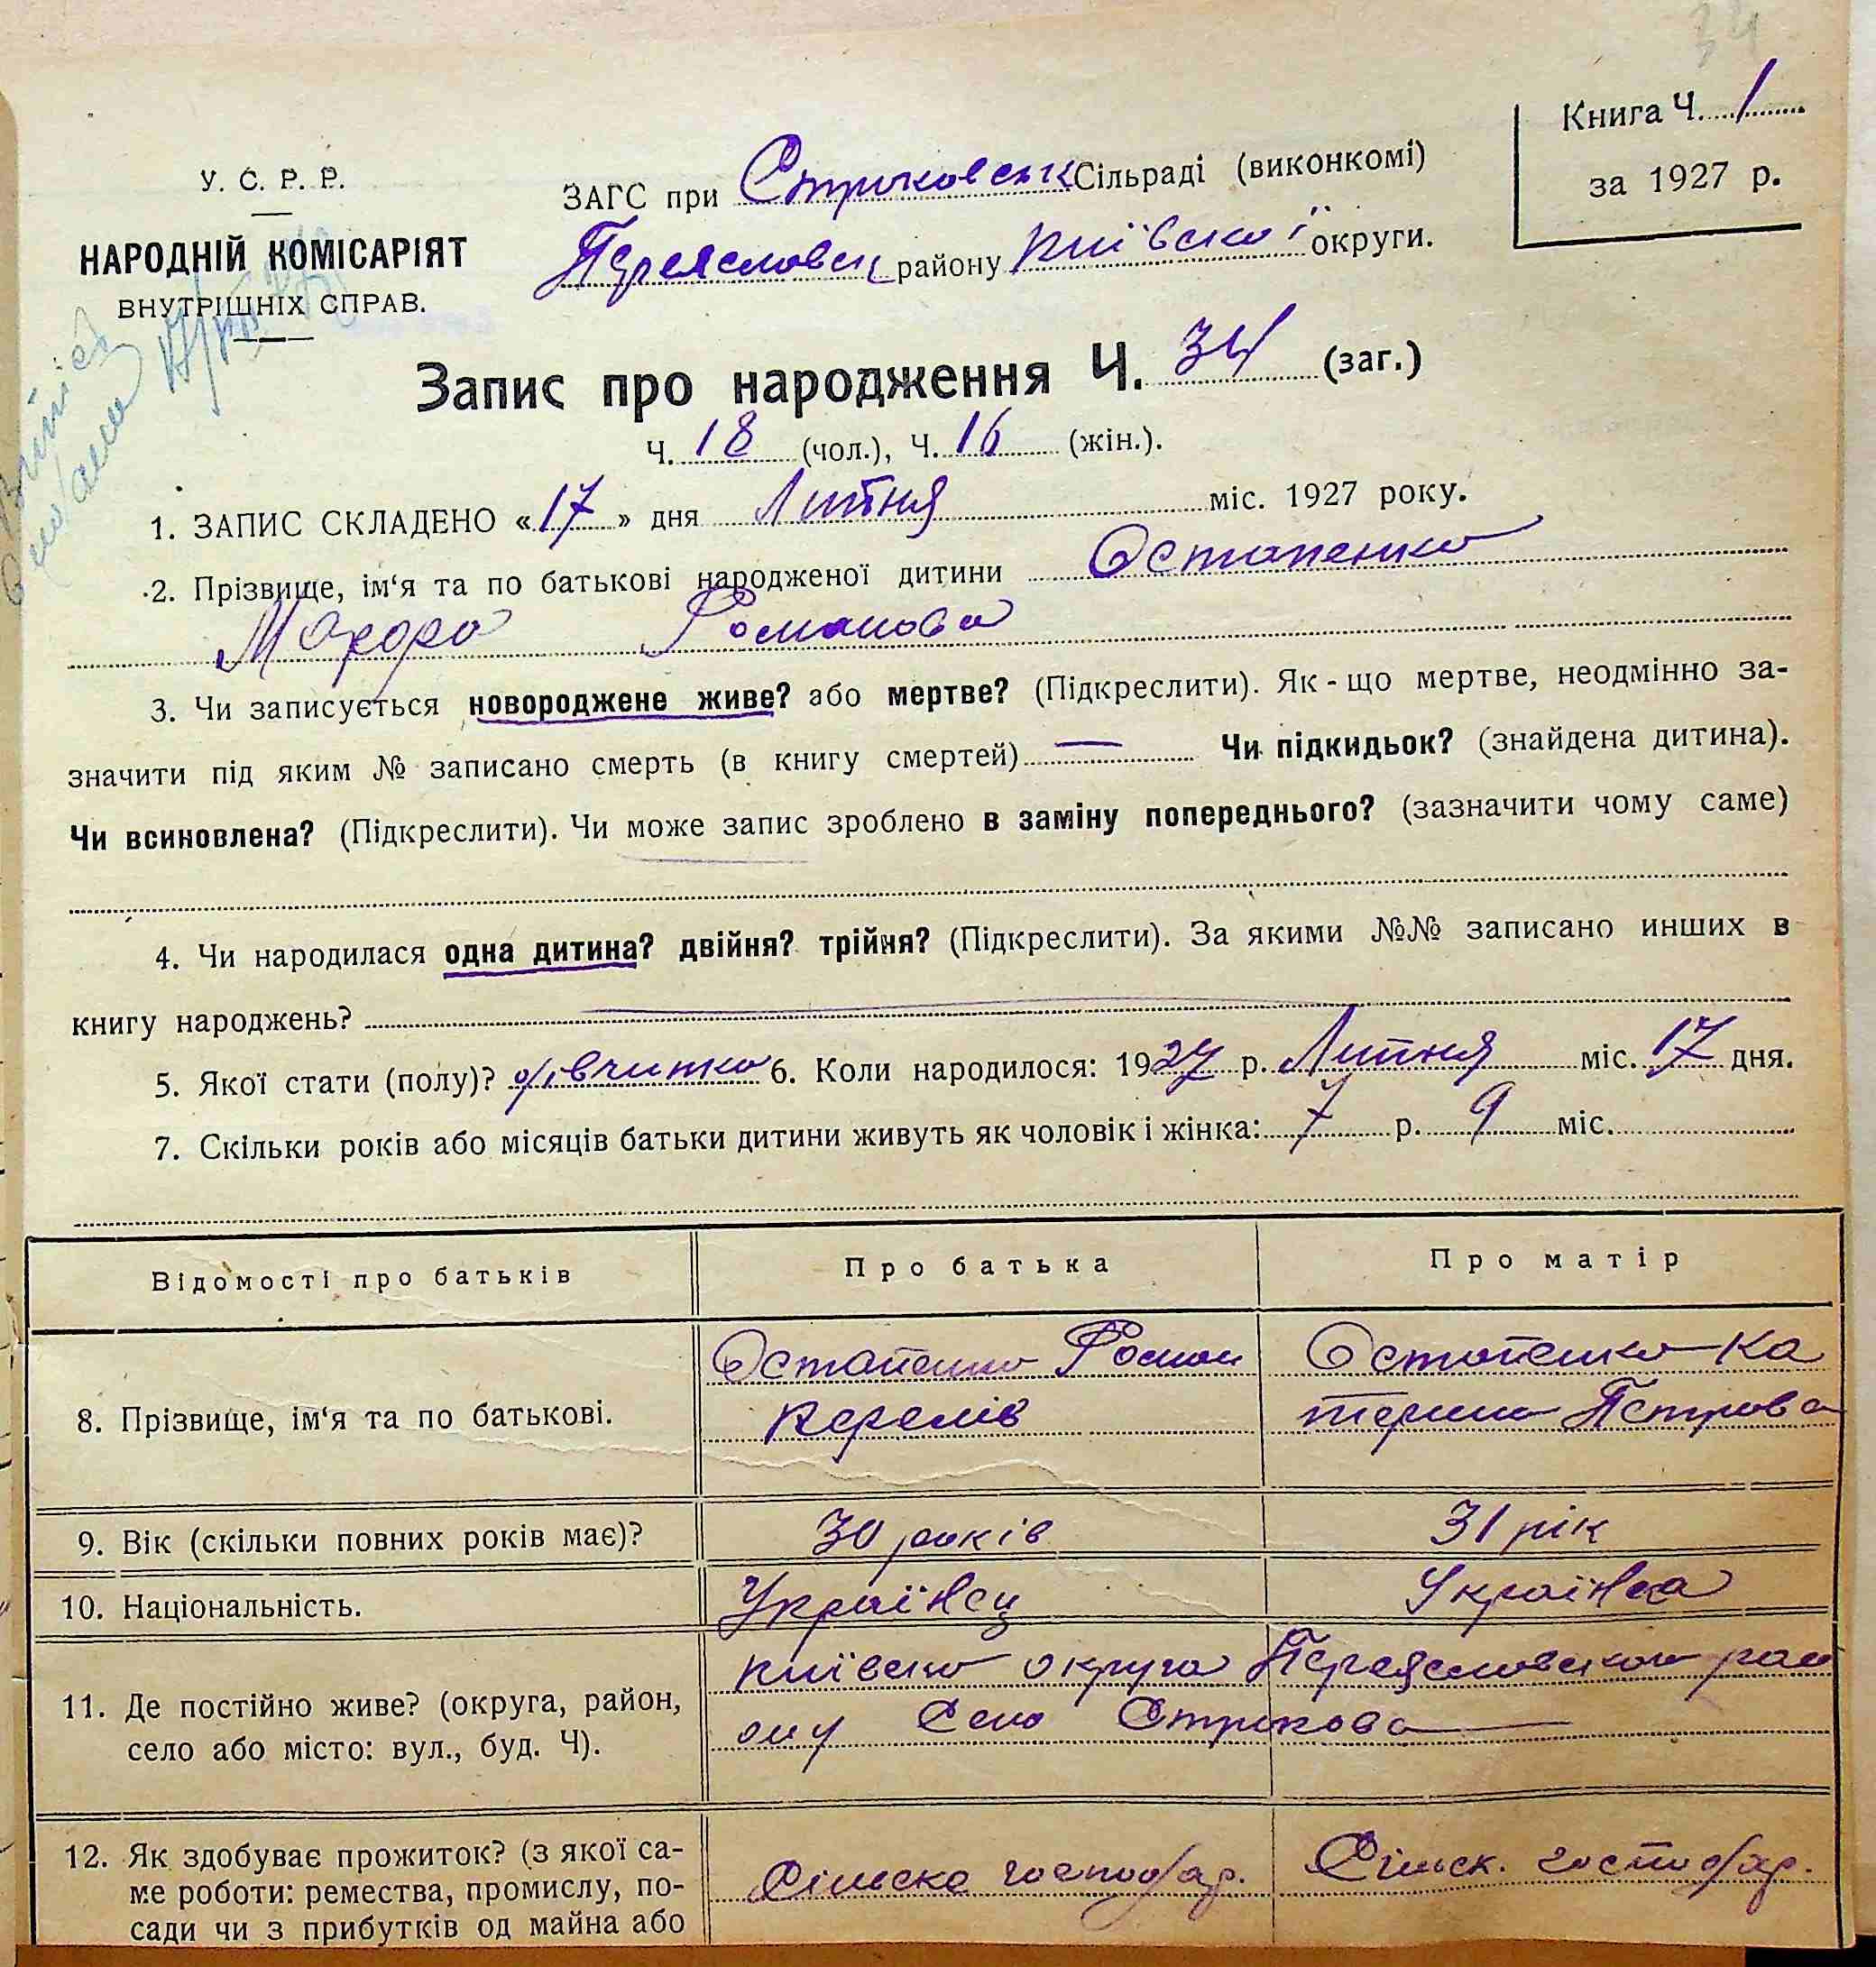 34
Книга Ч. 1
за 1927 р.
У. С. Р. Р.
НАРОДНІЙ КОМІСАРІЯТ
ВНУТРІШНІХ СПРАВ.
ЗАГС при Строковськ Сільраді (виконкомі)
Переяславськ району Київської округи.
Запис про народження Ч. 34 (заг.)
Ч. 18 (чол.), Ч. 16 (жін.).
1. ЗАПИС СКЛАДЕНО «17» дня Липня міс. 1927 року.
2. Прізвище, ім‘я та по батькові народженої дитини Остапенко
Романова
3. Чи записується новороджене живе? або мертве? (Підкреслити). Як-що мертве, неодмінно за-
значити під яким № записано смерть (в книгу смертей) — Чи підкидьок? (знайдена дитина).
Чи всиновлена? (Підкреслити). Чи може запис зроблено в заміну попереднього? (зазначити чому саме)
4. Чи народилася одна дитина? двійня? трійня? (Підкреслити). За якими №№ записано инших в
книгу народжень?
5. Якої стати (полу)? дівчинка 6. Коли народилося: 1927 р. Липня міс. 17 дня.
7. Скільки років або місяців батьки дитини живуть як чоловік і жінка: 7 р. 9 міс.
Відомості про батьків Про батька Про матір
8. Прізвище, ім‘я та по батькові. Остапенко Роман Остапенко Ка
терина Петрова
9. Вік (скільки повних років має)? 30 років 31 рік
10. Національність. Українец Українка
11. Де постійно живе? (округа, район, Київська округа Переяславського рай
село або місто: вул., буд. Ч). ону Село Строкова
12. Як здобуває прожиток? (з якої са- Сільске господар. Сільск. господар.
ме роботи: ремества, промислу, по-
сади чи з прибутків од майна або